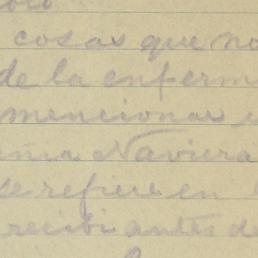 cosas que no
de la enferm
mencionar
Naviera
se refiere en
recibi antes de